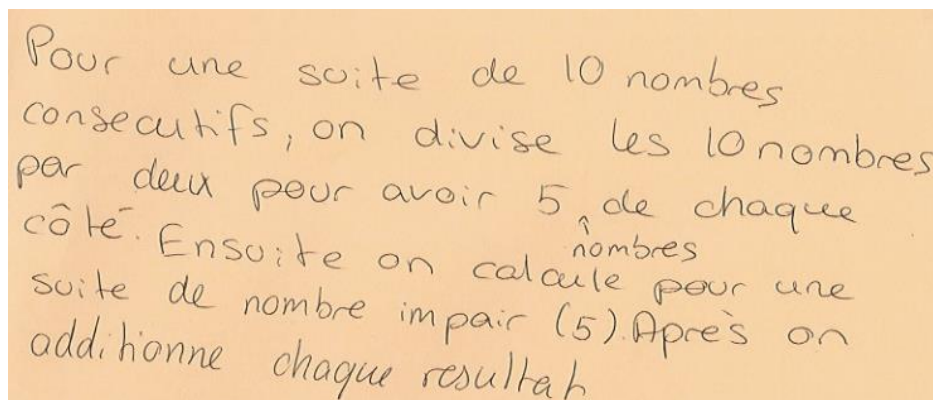 Pour une suite de 10 nombres
consecutifs, on divise les 10 nombres
par deux pour avoir 5 nombres de chaque
côté. Ensuite on calcule pour une
suite de nombre impair (5). Après on
additionne chaque resultat